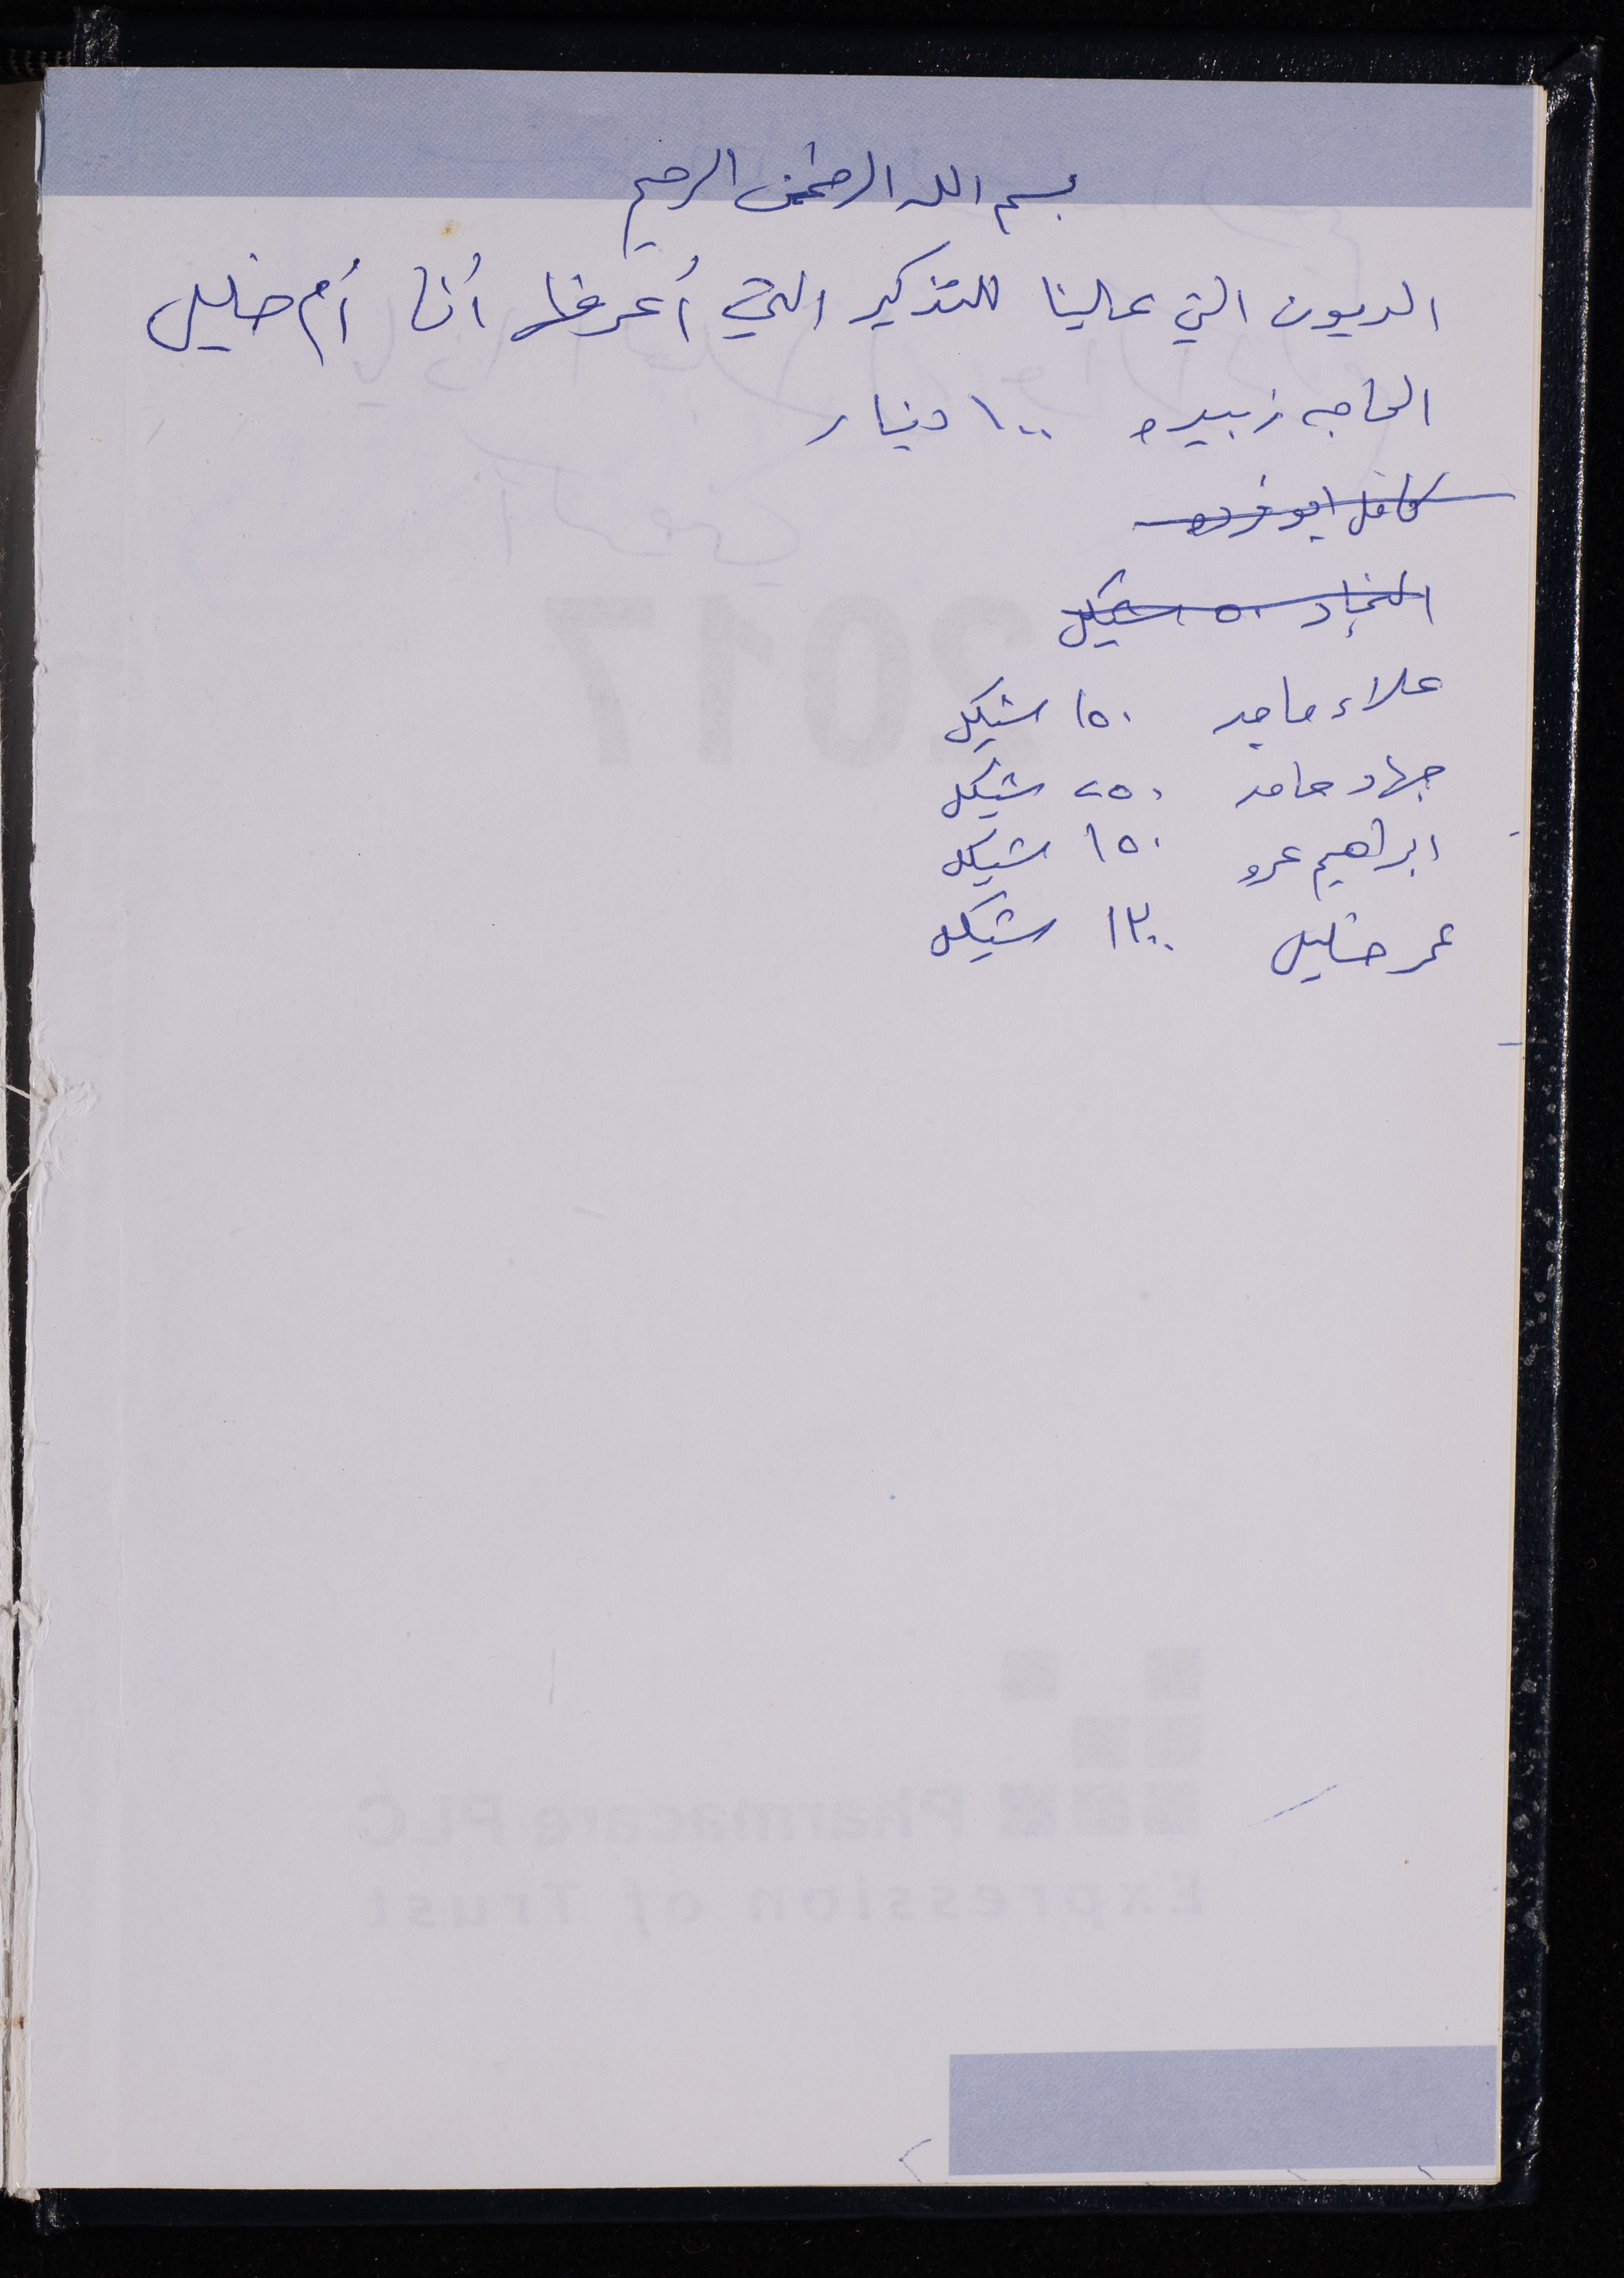 بسم الله الرحمن الرحيم
الديون التي علينا للتذكير التي أعرفها أنا أم خليل
الحاجه زبيده ١٠٠ دينار
كافل ابو فرده
النجار ٥٠ شيكل
علاء ماجد ١٥٠ شيكل
جهاد حامد ٢٥٠ شيكل
ابراهيم عمرو ١٥٠ شيكل
عمر خليل ١٣٠٠ شيكل
2017
Pharmacare PLC
Expression of Trust